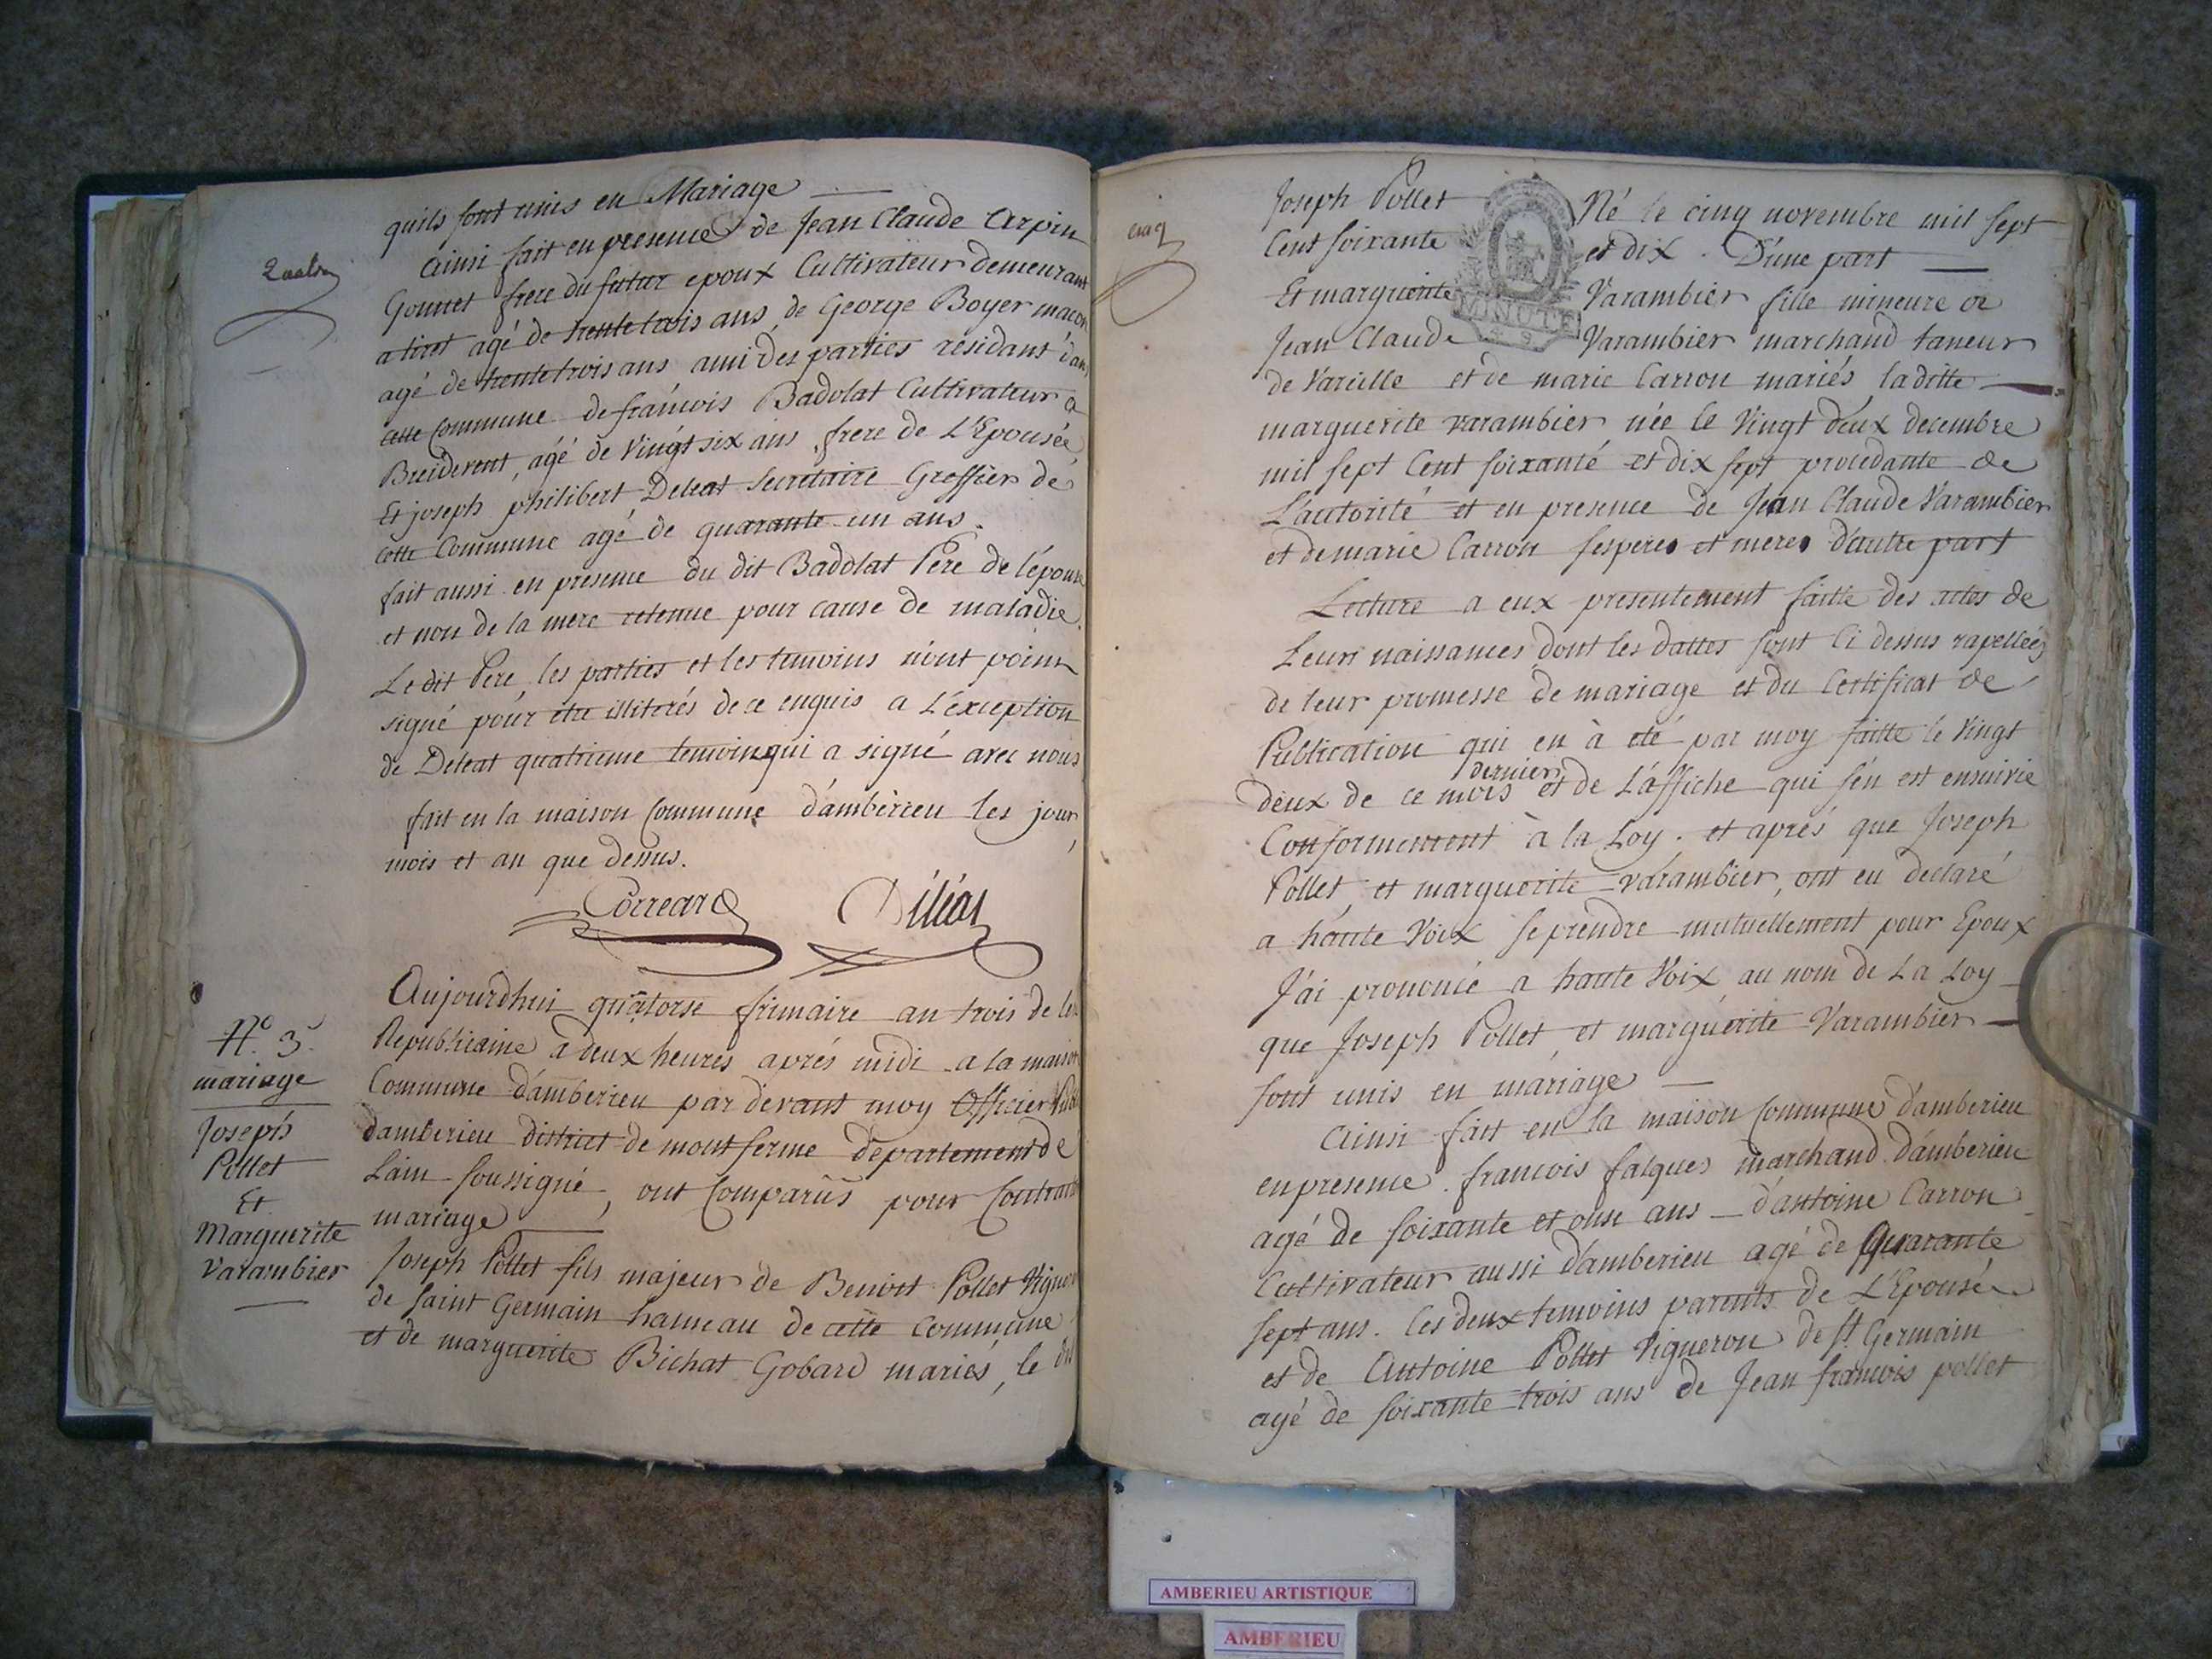 quatre
quils sont unis en Mariage
Ainsi fait en presence de Jean Claude Arpin
Gonnet frere du futur epoux Cultivateur demeurant
a tiret agé de trente trois ans, de George Boyer macon
agé de trente trois ans ami des parties résidant dans
cette Commune de francois Badolat Cultivateur a
Breiderent, agé de Vingt six ans frere de L'Epousée
Et joseph philibert Deleat Secretaire Greffier de
cette Commune agé de quarante un ans.
fait aussi en presence du dit Badolat Pere de l'épouse
et non de la mere retenue pour cause de maladie.
Le dit Pere, les parties et les temoins n'ont point
signé pour etre illiterés de ce enquis a L'exception
de Deleat quatrieme temoin qui a signé avec nous
fait en la maison Commune d'amberieu les jour,
mois et an que dessus.
Correard Déléat
N.º 3.
mariage
Joseph
Pollet
Et
Marguerite
Varambier
Aujourdhui quatorse frimaire an trois de l'ere
Republicaine a deux heures aprés midi a la maison
Commune d'amberieu par devant moy Officier Public
damberieu district de montferme département de
Lain soussigné, ont Comparûs pour Contracter
mariage
Joseph Pollet fils majeur de Benoit Pollet Vigneron
de Saint Germain hameau de cette Commune
et de marguerite Bichat Gobard mariés, le dit
cinq
Joseph Pollet Né le cinq novembre mil sept
Cent soixante et dix. D'une part
MINUTE
Et marguerite Varambier fille mineure de
Jean Claude Varambier marchand taneur
de Vareille et de marie Carron mariés, ladite
marguerite varambier née le Vingt deux decembre
mil sept Cent soixante et dix sept procedante de
L'autorité et en presence de Jean Claude Varambier
et de marie Carron ses peres et meres d'autre part
Lecture a eux presentement faitte des actes de
Leurs naissances dont les dattes sont Ci dessus rapellées
de leur promesse de mariage et du Certificat de
Publication qui en à eté par moy faitte le Vingt
dernier
deux de ce mois et de L'affiche qui s'en est ensuivie
Conformement à la Loy. et aprés que Joseph
Pollet, et marguerite varambier, ont eu declaré
a haute Voix se prendre mutuellement pour Epoux
J'ai prononcé a haute Voix, au nom de La Loy
que Joseph Pollet, et marguerite Varambier
sont unis en mariage
Ainsi fait en la maison Commune d'amberieu
en presence. francois falques marchand d'amberieu
agé de soixante et onse ans d'antoine Carron
Cultivateur aussi d'amberieu agé de Quarante
sept ans. les deux temoins parents de L'Epousée
et de Antoine Pollet Vigneron de St. Germain
agé de soixante trois ans de Jean francois pollet
AMBERIEU ARTISTIQUE
AMBERIEU